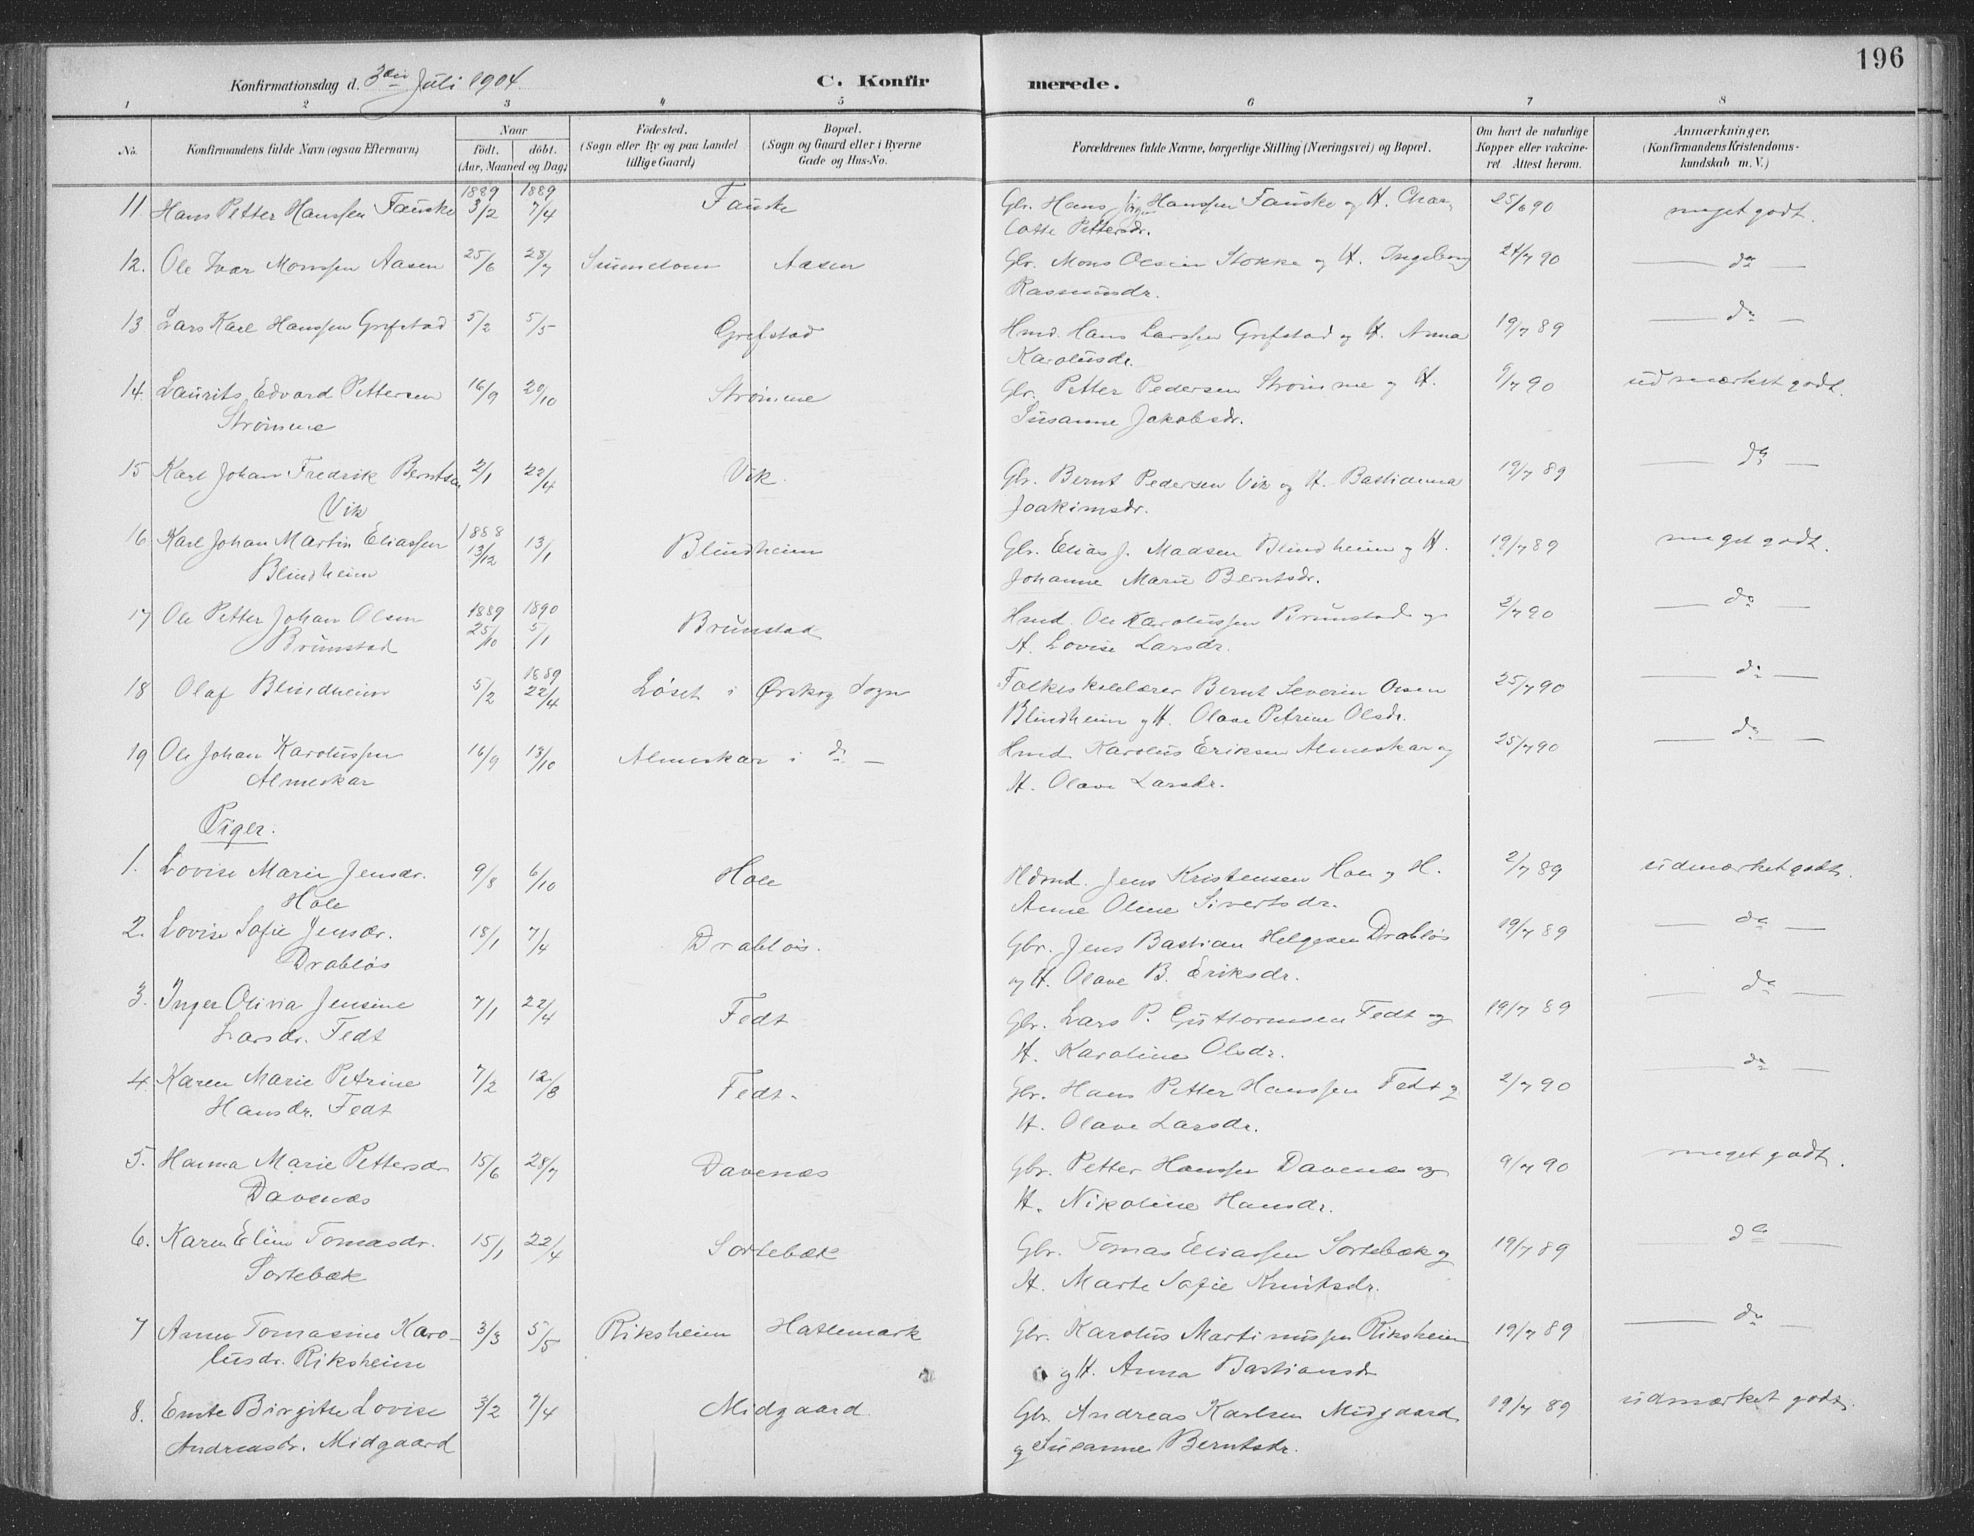 196
Konfirmationsdag d. 3die Juli 1904. C. Konfirmerede.
1 2 3 4 5 6 7 8
No. Konfirmandens fulde Navn (ogsaa Efternavn) Naar født. døbt. (Aar, Maaned og Dag) Fødested. (Sogn eller By og paa Landet tillige Gaard) Bopæl. (Sogn og Gaard eller i Byerne Gade og Hus-No. Forældrenes fulde Navne, borgerlige Stilling (Næringsvei) og Bopæl. Om havt de naturlige Kopper eller vakcineret Attest herom. Anmærkninger. (Konfirmandens Kristendomskundskab m. V.)
11. Hans Petter Hanssen Fauske 1889 3/2 1889 7/4 Fauske Gbr. Hans Hanssen Fauske og H. Char-
lotte Pettersdr. 25/6 90 meget godt.
12. Ole Ivar Monssen Aasen 25/6 28/7 Aasen Gbr. Mons Olsen Stokke og H. Ingeborg
Rasmusdr. 24/7 90 do
13 Lars Karl Hanssen Grefstad 5/2 5/5 Grefstad Hmd. Hans Larssen Grefstad og H. Anna
Karolusdr. 19/7 89 do
14. Laurits Edvard Pettersen
Strømme 16/9 20/10 Strømme Gbr. Petter Pedersen Strømme og H.
Susanne Jakobsdr. 9/7 90 udmærket godt.
15 Karl Johan Fredrik Berntsen
Vik 2/1 22/4 Vik. Gbr. Bernt Pedersen Vik og H. Bastianna
Joakimsdr. 19/7 89 do
16 Karl Johan Martin Eliassen
Blindheim 1888 13/12 13/1 Blindheim Gbr. Elias J. Madsen Blindheim og H.
Johanne Marie Berntsdr. 19/7 89 meget godt.
17 Ole Petter Johan Olsen
Brunstad 1889 25/10 1890 5/1 Brunstad Hmd. Ole Karolussen Brunstad og
H. Lovise Larsdr. 2/7 90 do
18 Olaf Blindheim 5/2 1889 22/4 Løset i Ørskog Sogn Folkeskolelærer Bernt Severin Olsen
Blindheim og H. Olave Petrine Olsdr. 25/7 90 do
19 Ole Johan Karolussen
Almeskar 16/9 13/10 Almeskar i do Hmd. Karolus Eriksen Almeskar og
H. Olave Larsdr. 25/7 90 do
Piger.
1. Lovise Marie Jensdr.
Hole 9/8 6/10 Hole Jens Kristensen Hole og H.
Anne Oline Sivertsdr. 2/7 89 udmærket godt.
2. Lovise Sofie Jensdr.
Drabløs 18/1 7/4 Drabløs. Gbr. Jens Bastian Helgesen Drabløs
og H. Olave B. Eriksdr. 19/7 89 do
3. Inger Olivia Jensine
Larsdr. Fedt 7/1 22/4 Fedt Gbr. Lars P. Guttormsen Fedt og
H. Karoline Olsdr. 19/7 89 do
4. Karen Marie Petrine
Hansdr. Fedt 7/2 12/3 Fedt. Gbr. Hans Petter Hanssen Fedt og
H. Olave Larsdr. 2/7 90 do
5. Hanna Marie Pettersdr
Davenæs 15/6 28/7 Davenæs Gbr. Petter Hanssen Davenæs og
H. Nikoline Hansdr. 9/7 90 meget godt.
6. Karen Eline Tomasdr.
Sortebæk 15/1 22/4 Sortebæk Gbr. Tomas Eliassen Sortebæk og
H. Marte Sofie Knutsdr. 19/7 89 do
7 Anna Tomasine Karo-
lusdr. Riksheim 3/3 5/5 Riksheim Hatlemark Gbr. Karolus Martinussen Riksheim
og H. Anna Bastiansdr 19/7 89 do
8. Emte Birgitte Lovise
Andreasdr. Midgaard 3/2 7/4 Midgaard Gbr. Andreas Karlsen Midgaard
og Susanne Berntsdr. 19/7 89 udmærket godt.